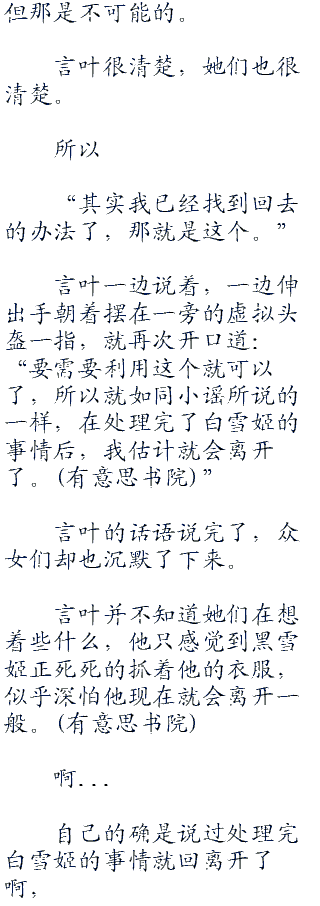 但那是不可能的。
言叶很清楚，她们也很
清楚。
所以
“其实我已经找到回去
的办法了，那就是这个。”
言叶一边说着，一边伸
出手朝着摆在一旁的虚拟头
盔一指，就再次开口道：
“要需要利用这个就可以
了，所以就如同小谣所说的
一样，在处理完了白雪姬的
事情后，我估计就会离开
了。(有意思书院)”
言叶的话语说完了，众
女们却也沉默了下来。
言叶并不知道她们在想
着些什么，他只感觉到黑雪
姬正死死的抓着他的衣服，
似乎深怕他现在就会离开一
般。(有意思书院)
啊...
自己的确是说过处理完
白雪姬的事情就回离开了
啊，